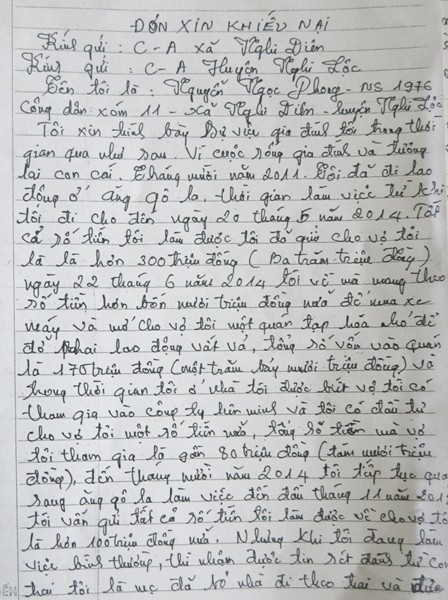 ĐÓN XIN KHIẾU NẠI
Kính gửi : C-A xã Nghi Diên
Kính gửi : C-A Huyện Nghi Lộc
Tên tôi là : Nguyễn Ngọc Phong - NS 1976
Công dân xóm 11 - xã Nghi Diên - huyện Nghi Lộc
Tôi xin trình bày sự việc gia đình tôi trong thời
gian qua như sau. Vì cuộc sống gia đình và tương
lai con cái. Tháng mười năm 2011. Tôi đã đi lao
động ở ăng gô la. thời gian làm việc từ khi
tôi đi cho đến ngày 20 tháng 5 năm 2014. Tất
cả số tiền tôi làm được tôi đã gửi cho vợ tôi
là là hơn 300 triệu đồng (Ba trăm triệu đồng)
ngày 22 tháng 6 năm 2014 tôi về mà mang theo
số tiền hơn bốn mười triệu đồng nữa để mua xe
máy và mở cho vợ tôi một quán tạp hóa nhỏ để
đỡ phải lao động vất vả, tổng số vốn vào quán
là 170 triệu đồng (một trăm bảy mười triệu đồng) và
trong thời gian tôi ở nhà tôi được biết vợ tôi có
tham gia vào công ty liên minh và tôi có đầu tư
cho vợ tôi một số tiền nữa, tổng số tiền mà vợ
tôi tham gia là gần 80 triệu đồng (tám mười triệu
đồng), đến tháng mười năm 2014 tôi tiếp tục qua
sang ăng gô la làm việc đến đầu tháng 11 năm 201
tôi vẫn gửi tất cả số tiền tôi làm được về cho vợ tô
là hơn 100 triệu đồng nữa. Nhưng khi tôi đang làm
việc bình thường, thì nhận được tin sét đánh từ con
trai tôi là mẹ đã bỏ nhà đi theo trai và